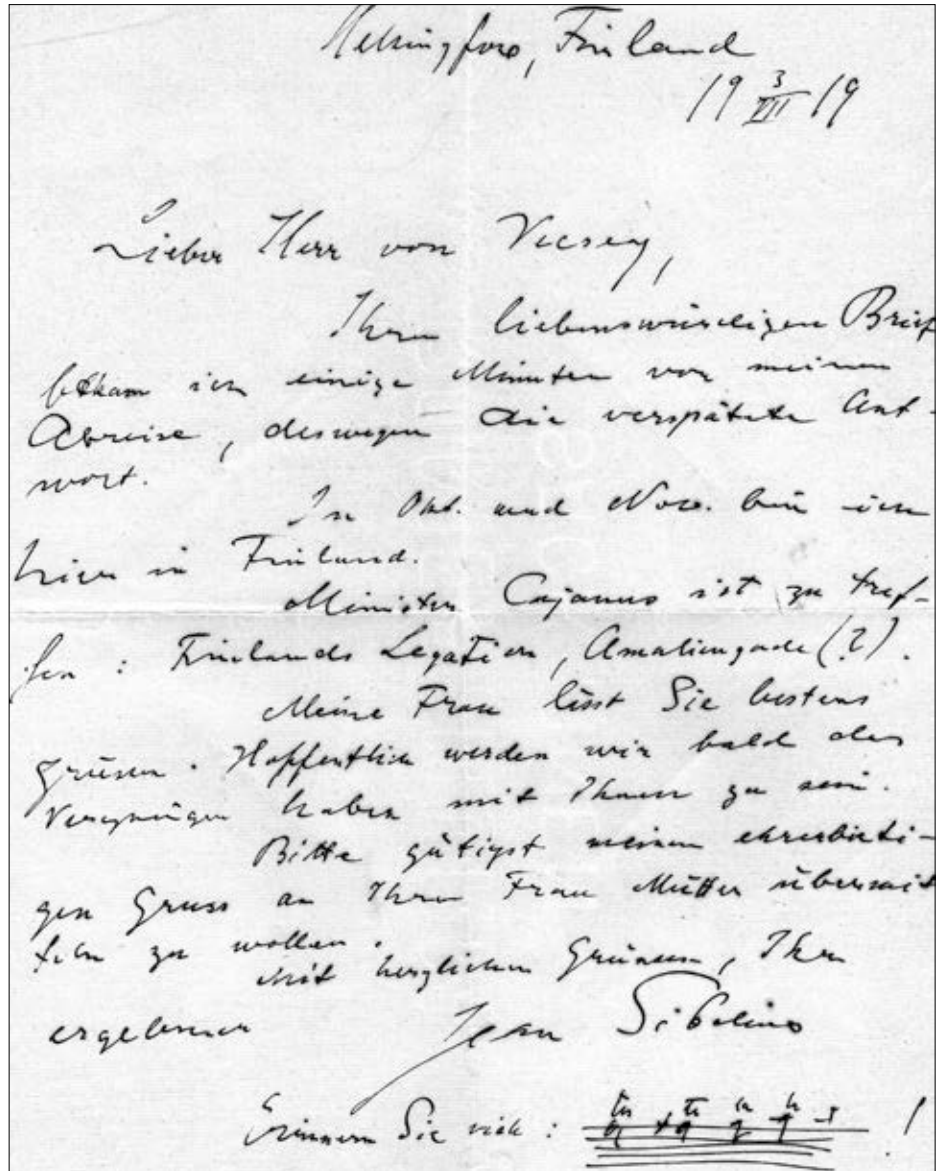 Helsingfors, Finland
19 3/VII 19
Lieber Herr von Vecsey,
Ihren liebenswürdigen Brief
bekam ich einige Minuten vor meiner
Abreise, deswegen die verspätete Ant-
wort.
In Okt. und Nov. bin ich
hier in Finland.
Minister Cajanus ist zu tref-
fen : Finlands Legation, Amaliengade (?).
Meine Frau lässt Sie bestens
grüssen. Hoffentlich werden wir bald das
Vergnügen haben mit Ihnen zu sein.
Bitte gütigst meinen ehrerbieti-
gen Gruss an Ihre Frau Mutter übermit
teln zu wollen.
Mit herzlichen Grüssen, Ihr
ergebener Jean Sibelius
Erinnern Sie sich : !